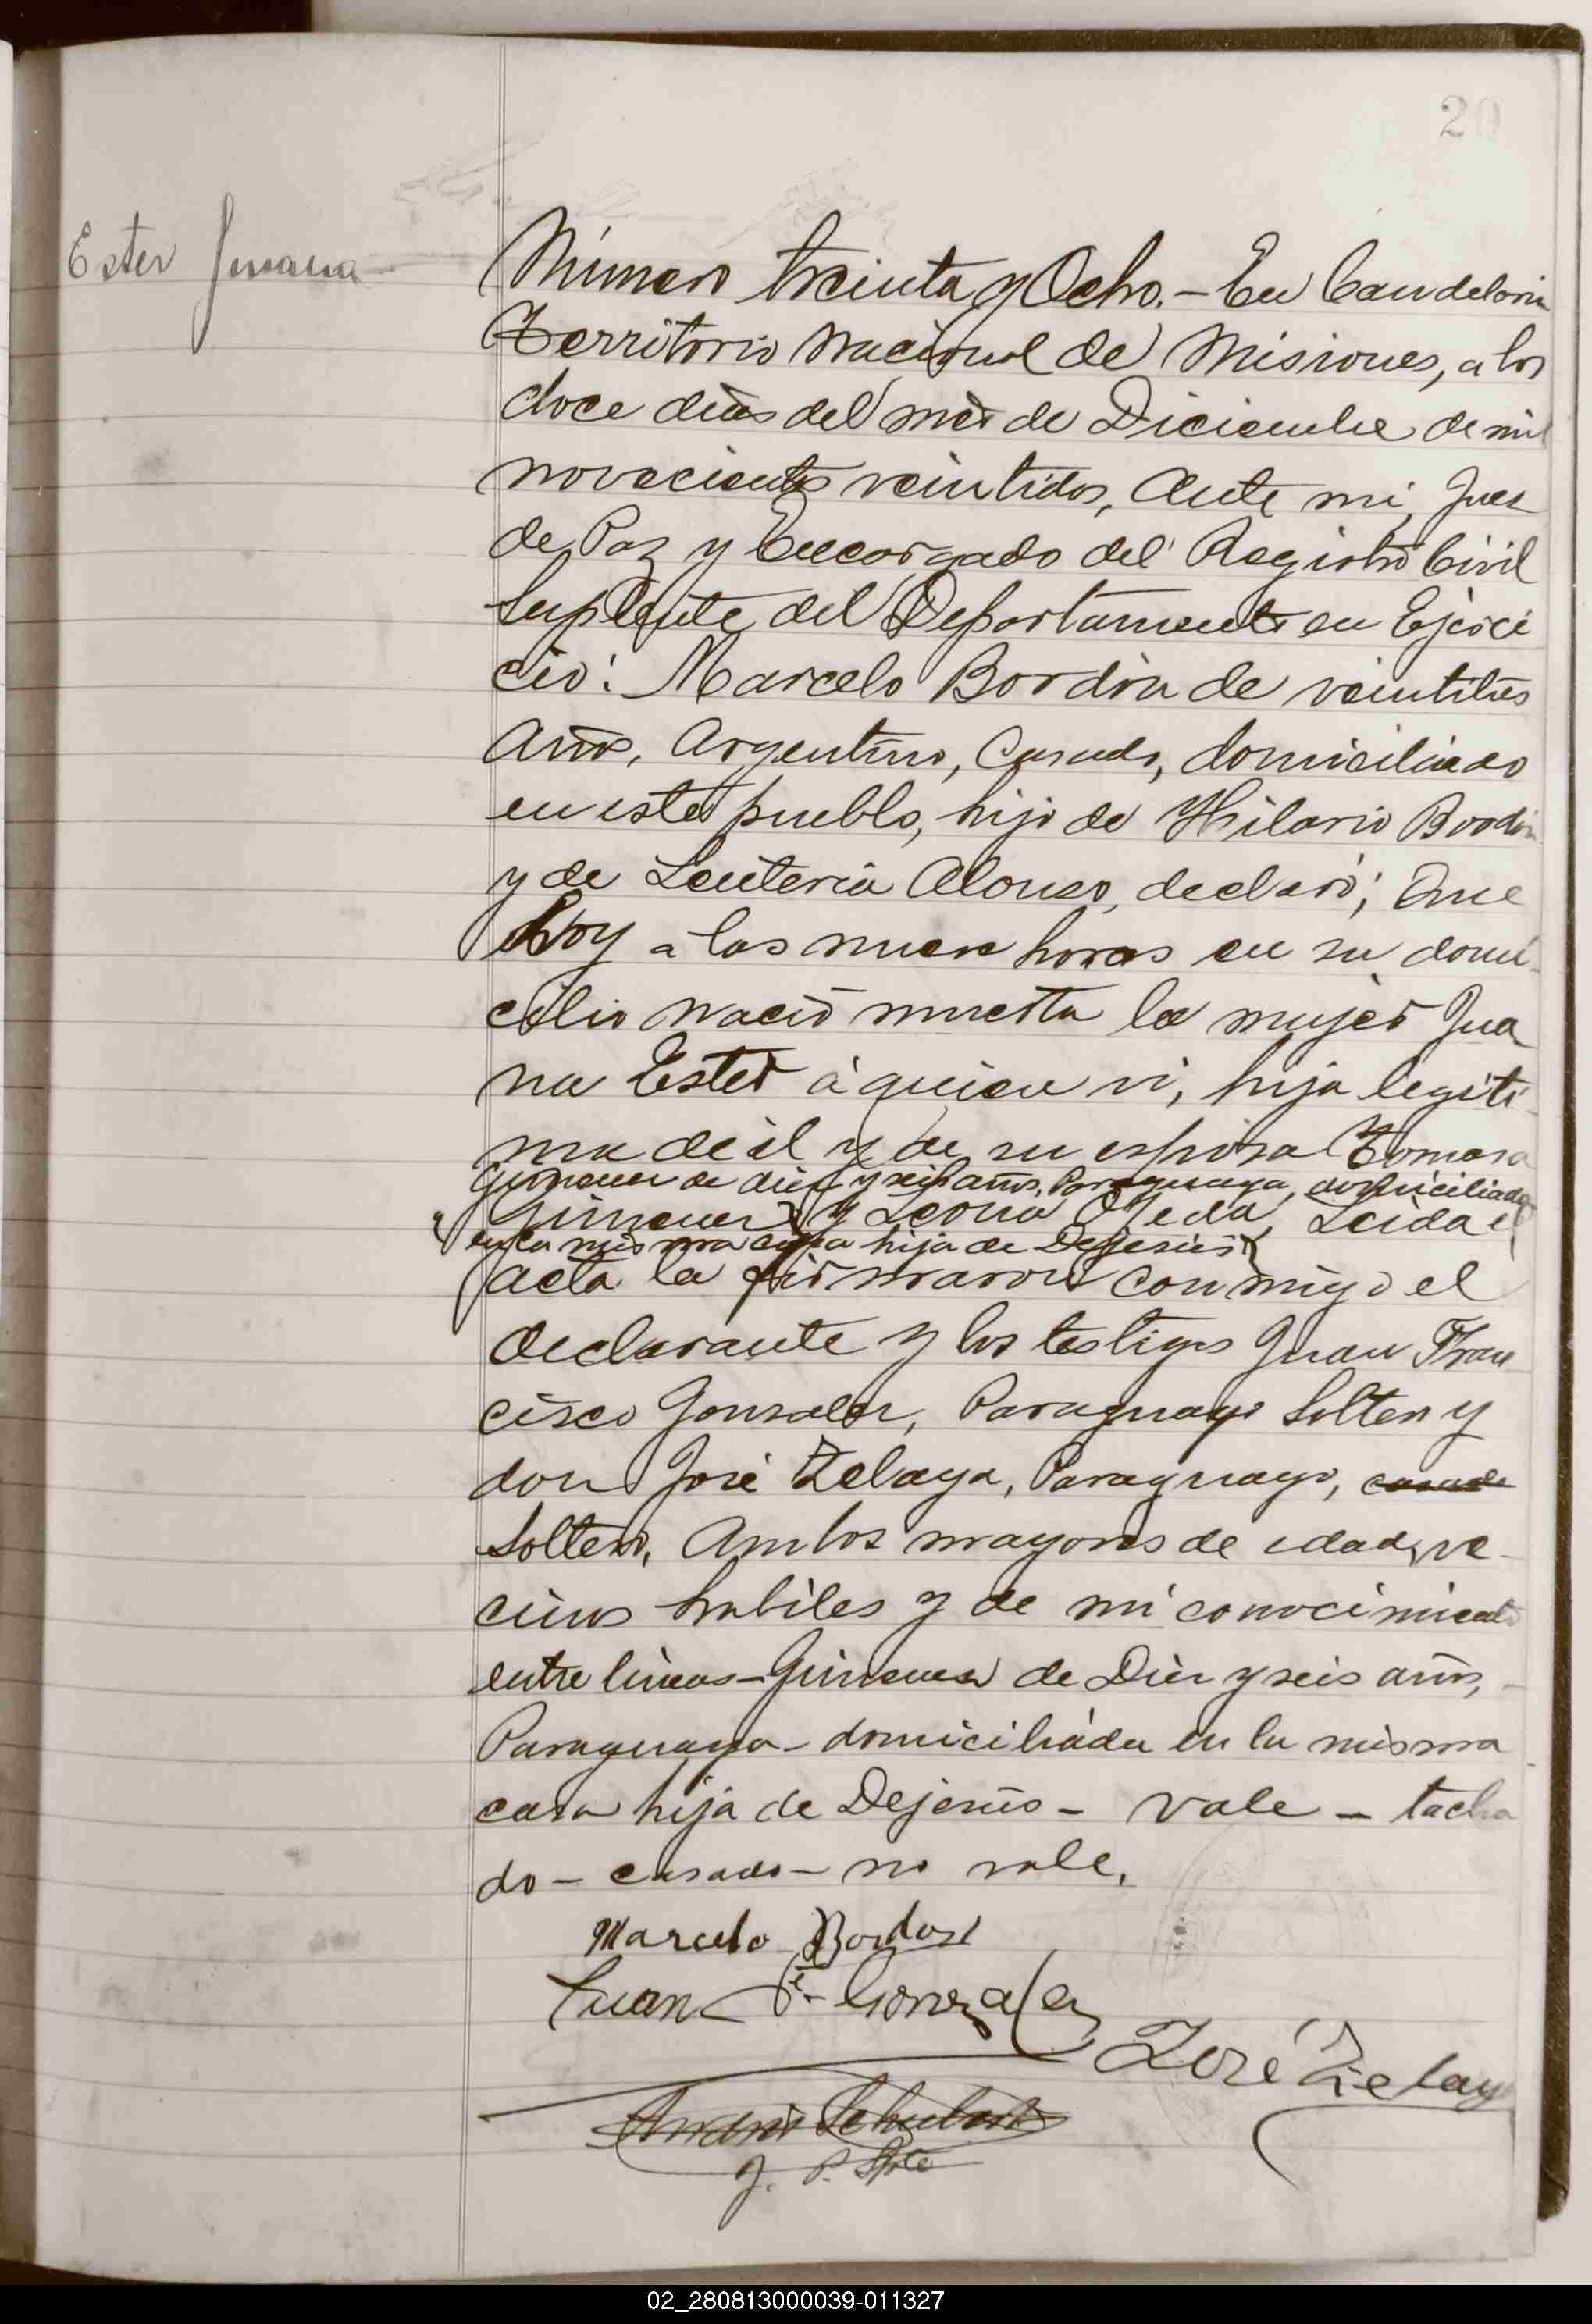 20
Ester Juana
Número treinta y Ocho. - En Candelaria
Territorio Nacional de Misiones, a los
doce dias del mes de Diciembre de mil
novecientos veintidos, Ante mi, Juez
de Paz y Encargado del Registro Civil
Suplente del Departamento en Ejerci
cio: Marcelo Bordón de veintitres
Años, Argentino, Casado, domiciliado
en este pueblo, hijo de Hilario Bordón
y de Leuteria Alonso, declaró; Que
Hoy a las nueve horas en su domi-
cilio nació muerta la mujer Jua
na Ester á quien vi, hija legiti-
ma de él y de su esposa Tomasa
Gimenez de diez y seis años, Paraguaya, domiciliada
Gimenez y Leona Ojeda, Leida el
en la misma casa hija de Dejesús
acta la firmaron conmigo el
declarante y los testigos Juan Fran
cisco Gonzalez, Paraguayo Soltero y
don José Zelaya, Paraguayo, casado
Soltero, Ambos mayores de edad, ve-
cinos habiles y de mi conocimiento
entre lineas - Gimenez de Diez y seis años, -
Paraguaya - domiciliáda en la misma
casa hija de Dejesús - vale - tacha
do - casado - no vale.
Marcelo Bordon
Juan F. Gonzalez
José Zelaya
Schubert
J. P. Splte
02_280813000039-011327